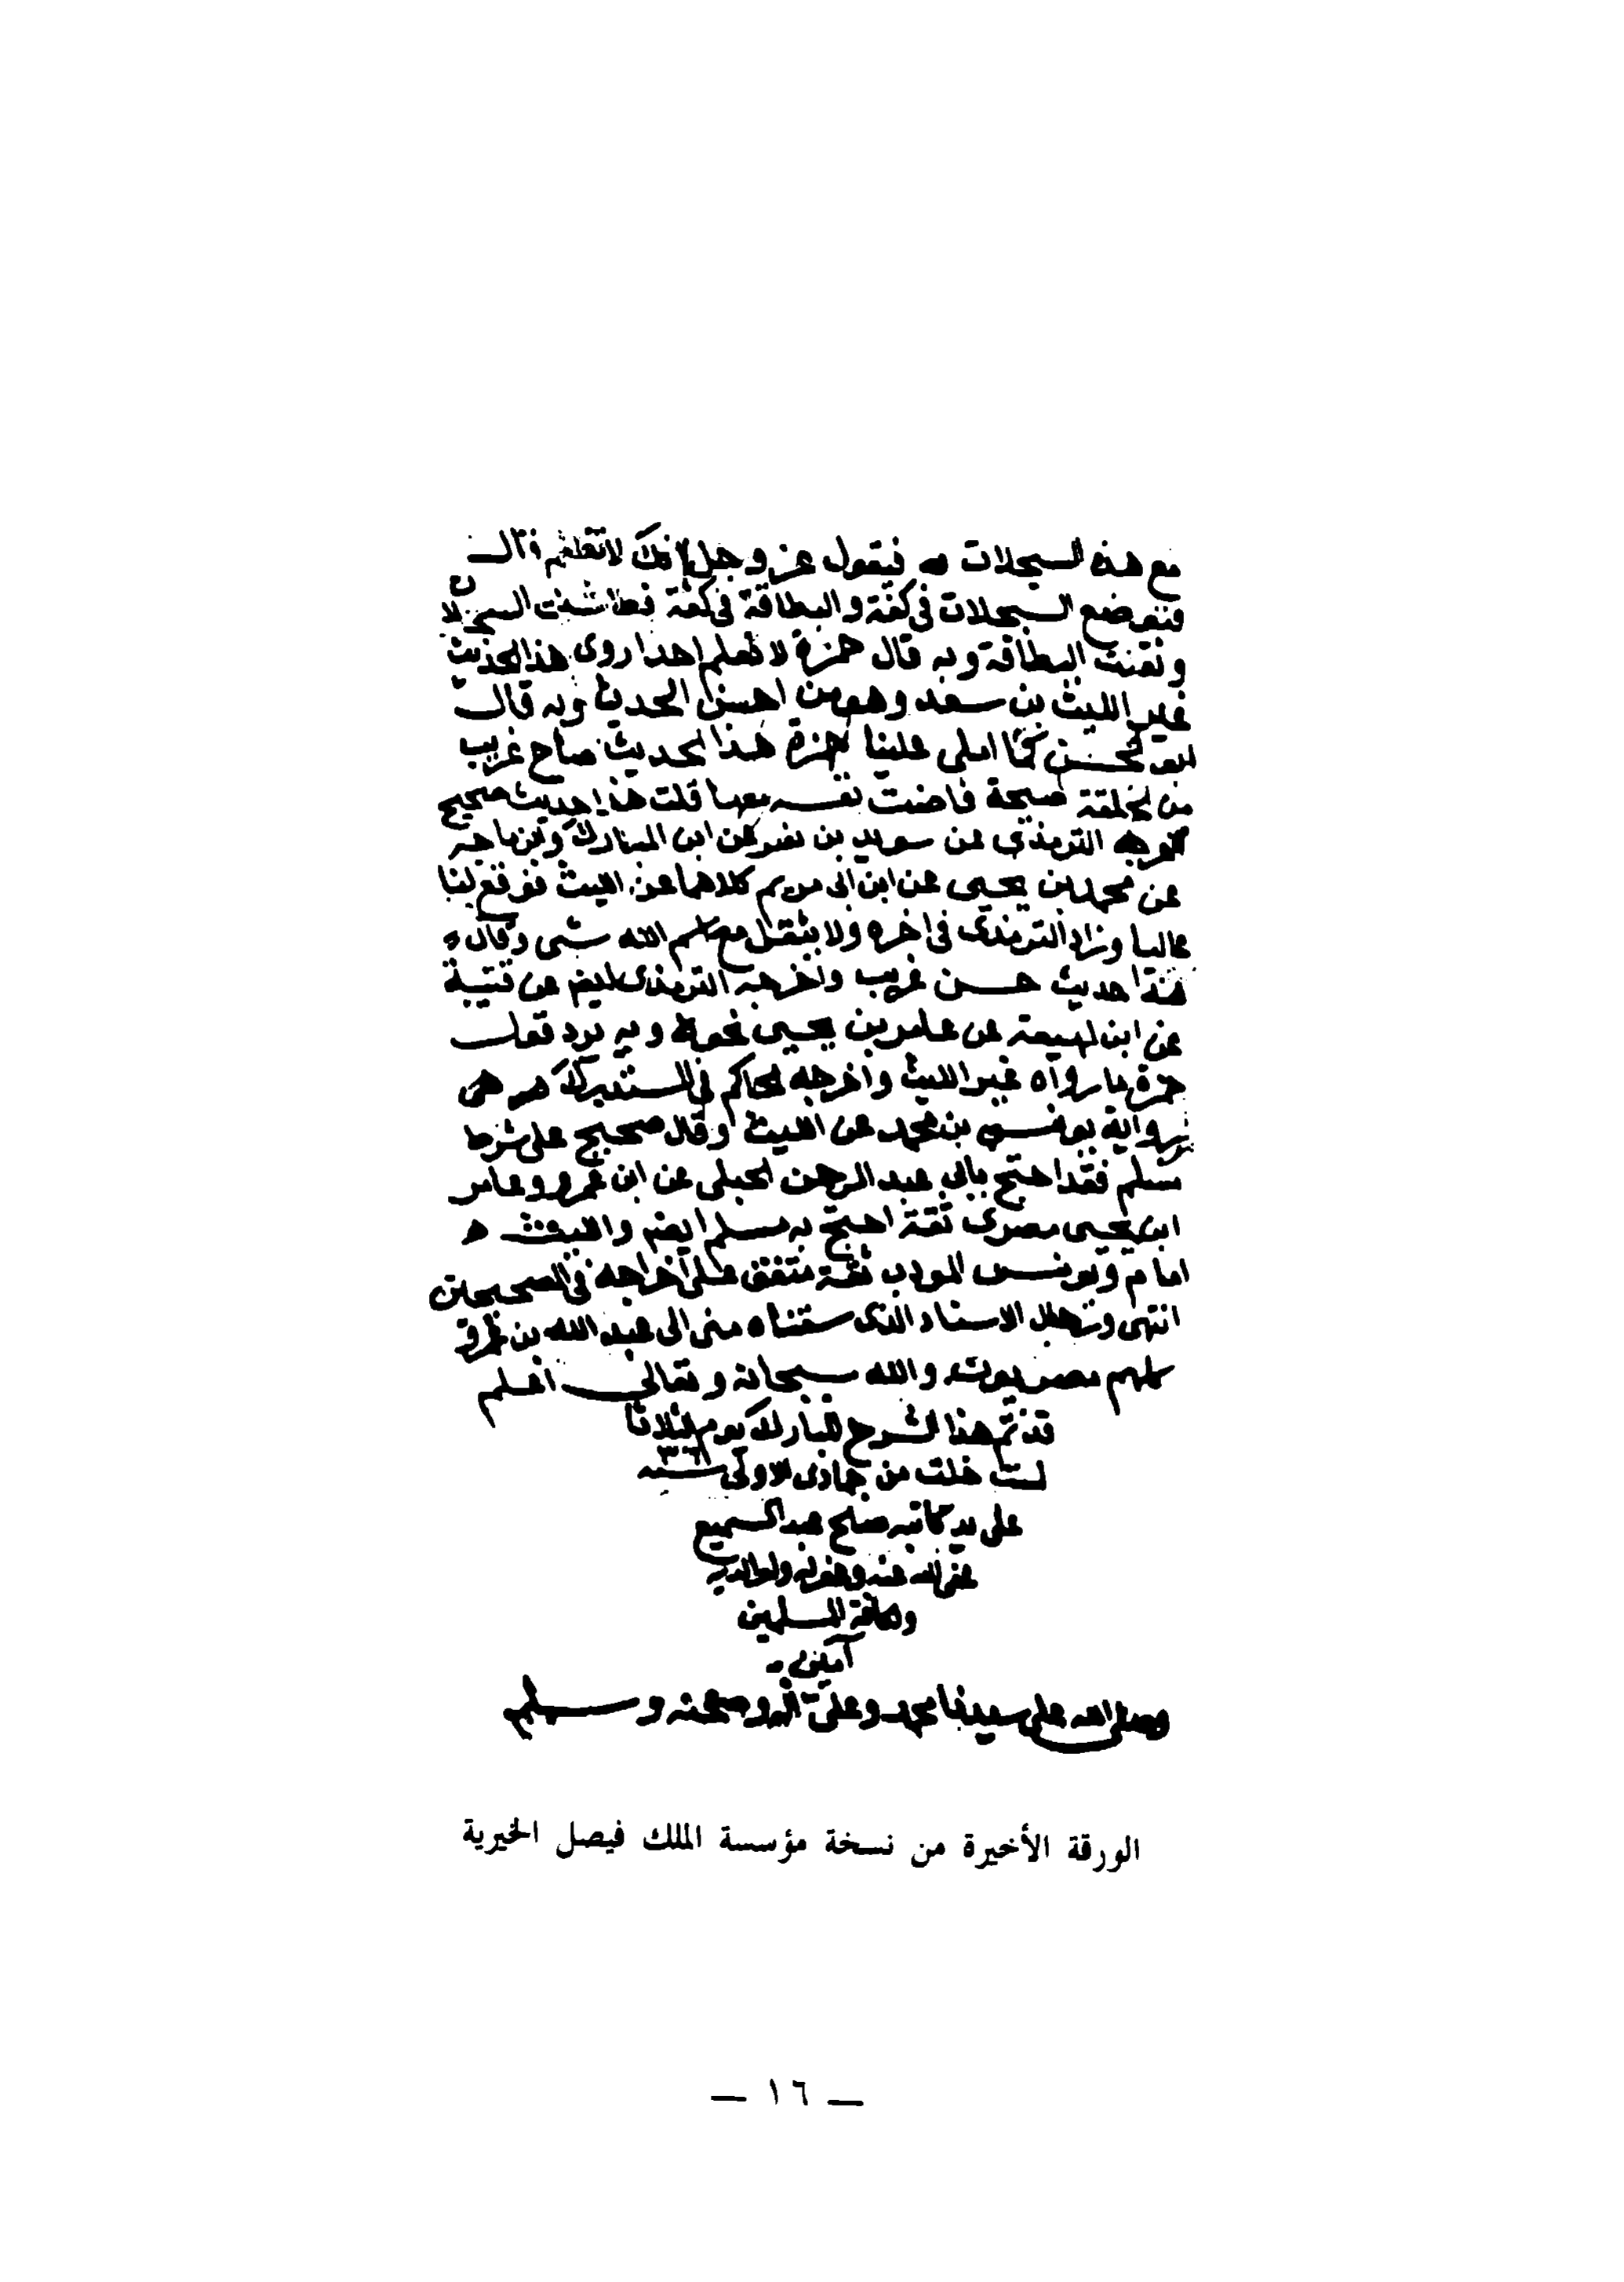 مع هذه السجلات فيقول عز وجل انك لا تظلم قال
فتوضع السجلات في كفة والبطاقة في كفة فطاشت السجلات
وثقلت البطاقة وبه قال حمزة لا نعلم احدا روى هذا الحديث
غير الليث بن سعد وهو من احسن الحديث وبه قال
ابو الحسن لما املى علينا حمزة هذا الحديث صاح غريب
من الحلقة صيحة فاضت نفسه معها قلت هذا حديث صحيح
اخرجه الترمذي عن سويد بن نصر عن ابن المبارك وابن ماجه
عن محمد بن يحيى عن ابن ابي مريم كلاهما عن الليث فوقع لنا
عاليا وزاد الترمذي في اخره ولا يثقل مع اسم الله شي وقال
هذا حديث حسن غريب واخرجه الترمذي ايضا عن قتيبة
عن ابن لهيعة عن عامر بن يحيى نحوه وبه يرد قول
حمزة ما رواه غير الليث واخرجه الحاكم في المستدرك من
رواية يونس بن محمد عن الليث وقال صحيح على شرط
مسلم فقد احتج بابي عبد الرحمن الحبلي عن ابن عمرو وعامر
ابن يحيى مصري ثقة احتج به مسلم ايضا والليث
امام ويونس المودب ثقة متفق على اخراجه في الصحيحين
انتهى ورجال الاسناد الذي سقناه مني الى عبد الله بن عمرو
كلهم مصريون والله سبحانه وتعالى اعلم
قد تم هذا الشرح المبارك يوم الثلاثا
لست خلت من جمادى الاولى سنة
على يد كاتبه صالح عبد السميع
غفر الله عنه وغفر له ولوالديه
وكافة المسلمين
آمين
وصلى الله على سيدنا محمد وعلى آله وصحبه وسلم
الورقة الأخيرة من نسخة مؤسسة الملك فيصل الخيرية
— ١٦ —